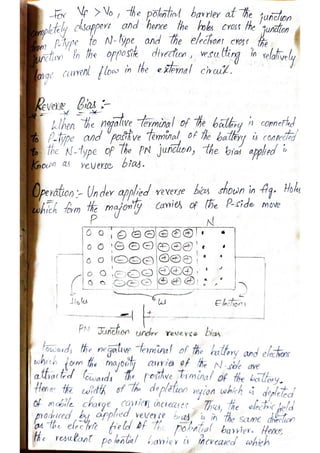 For Vf > Vo, the potential barrier at the junction
completely disappears and hence the holes cross the junction
from P-type to N-type and the electrons cross the
junction in the opposite direction, resulting in relatively
large current flow in the external circuit.
Reverse Bias :-
When the negative terminal of the battery is connected
to P-type and positive terminal of the battery is connected
to the N-type of the PN junction, the bias applied is
known as reverse bias.
Operation:- Under applied reverse bias shown in fig. Holes
which form the majority carriers of the P-side move
P N
Holes W Electrons
PN Junction under reverse bias
towards the negative terminal of the battery and electrons
which form the majority carriers of the N side are
attracted towards the positive terminal of the battery.
Hence the width of the depletion region which is depleted
of mobile charge carriers increases. Thus, the electric field
produced by applied reverse bias is in the same direction
as the electric field of the potential barrier. Hence
the resultant potential barrier is increased which